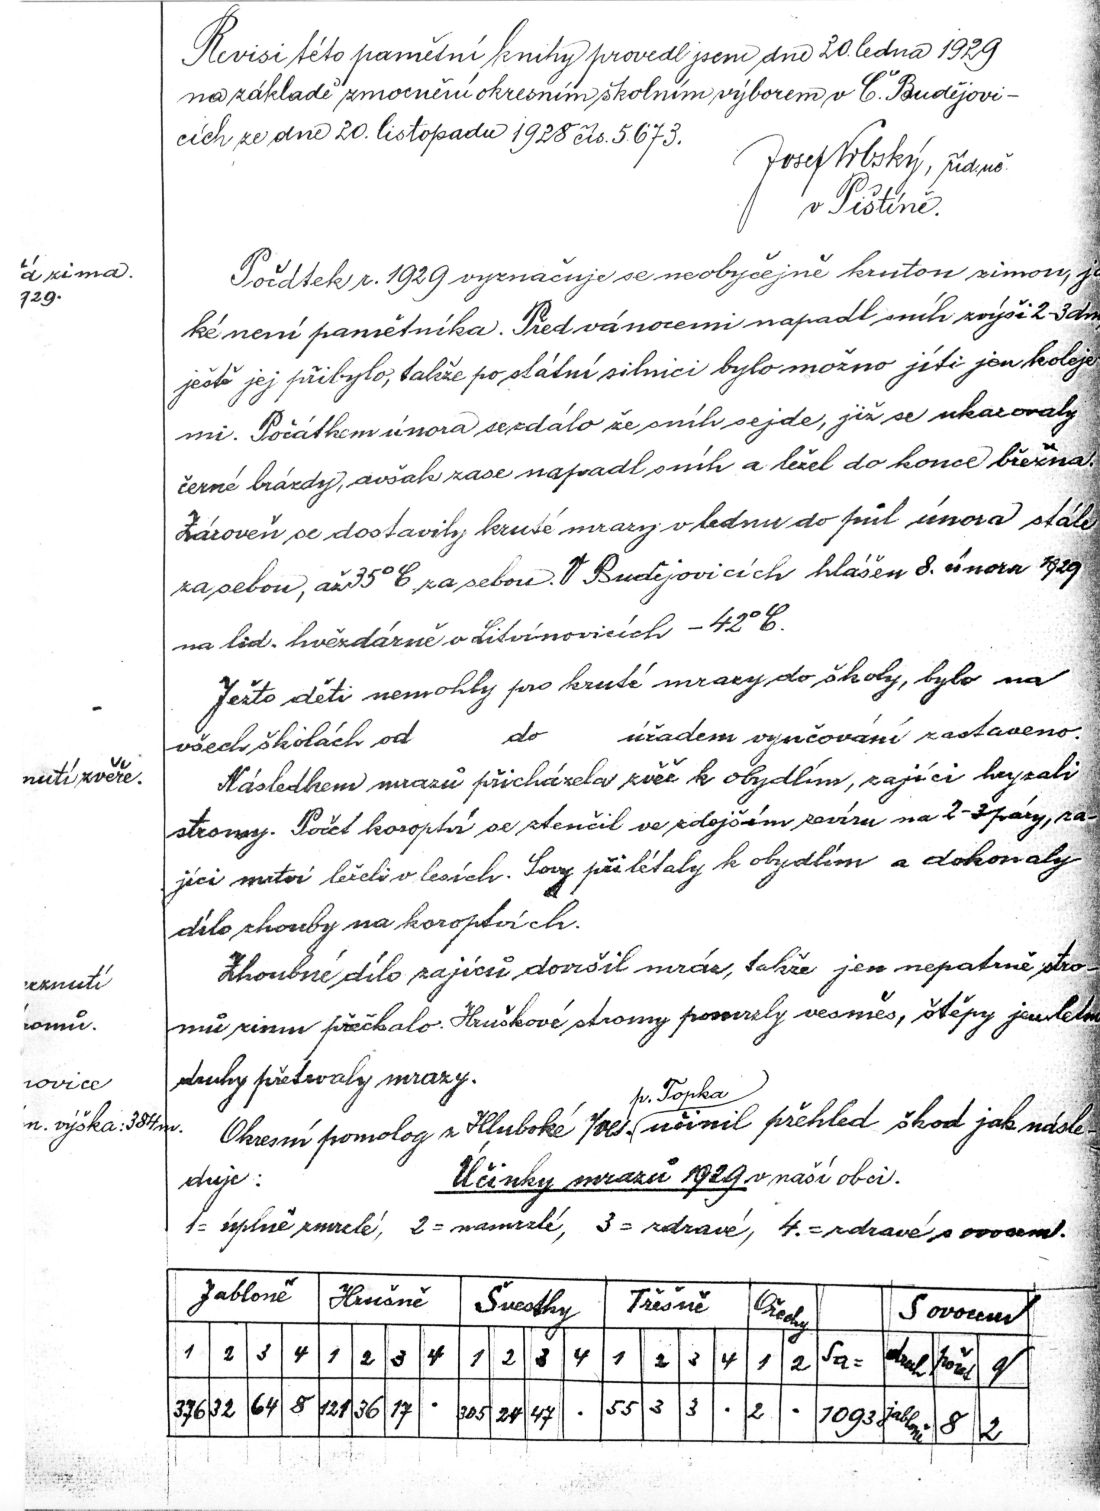 Revisi této pamětní knihy provedl jsem dne 20. ledna 1929
na základě zmocnění okresním školním výborem v Č. Budějovi-
cích ze dne 20. listopadu 1928 čís. 5.673.
Josef Vrbský, říd. uč.
v Pištíně.
á zima.
929.
Počátek r. 1929 vyznačuje se neobyčejně krutou zimou, ja
ké není pamětníka. Před vánocemi napadl sníh zvýši 2-3 dm
ještě jej přibylo, takže po státní silnici bylo možno jíti jen koleje
mi. Počátkem února se zdálo že sníh sejde, již se ukazovaly
černé brázdy, avšak zase napadl sníh a ležel do konce března.
Zároveň se dostavily kruté mrazy v lednu do půl února stále
za sebou, až 35°C za sebou. V Budějovicích hlášen 8. února 1929
na lid. hvězdárně v Litvínovicích – 42°C.
Ježto děti nemohly pro kruté mrazy do školy, bylo na
všech školách od do úřadem vyučování zastaveno.
nutí zvěře.
Následkem mrazů přicházela zvěř k obydlím, zajíci hryzali
stromy. Počet koroptví se ztenčil ve zdejším revíru na 2-3 páry, za-
jíci mrtví leželi v lesích. Sovy přilétaly k obydlím a dokonaly
dílo zhouby na koroptvích.
rznutí
romů.
Zhoubné dílo zajíců dovršil mráz, takže jen nepatrně stro-
mů zimu přečkalo. Hruškové stromy pomrzly vesměs, štěpy jen letn
druhy přetrvaly mrazy.
novice
n. výška: 384 m.
p. Topka
Okresní pomolog z Hluboké n/Vlt. učinil přehled škod jak násle-
duje:
Účinky mrazů 1929 v naší obci.
1 = úplně zmrzlé, 2 = namrzlé, 3 = zdravé, 4. = zdravé s ovocem.
Jabloně Hrušně Švestky Třešně Ořechy S ovocem
1 2 3 4 1 2 3 4 1 2 3 4 1 2 3 4 1 2 Sa = druh počet q
376 32 64 8 121 36 17 · 305 24 47 · 55 3 3 · 2 · 1093 jabloně 8 2